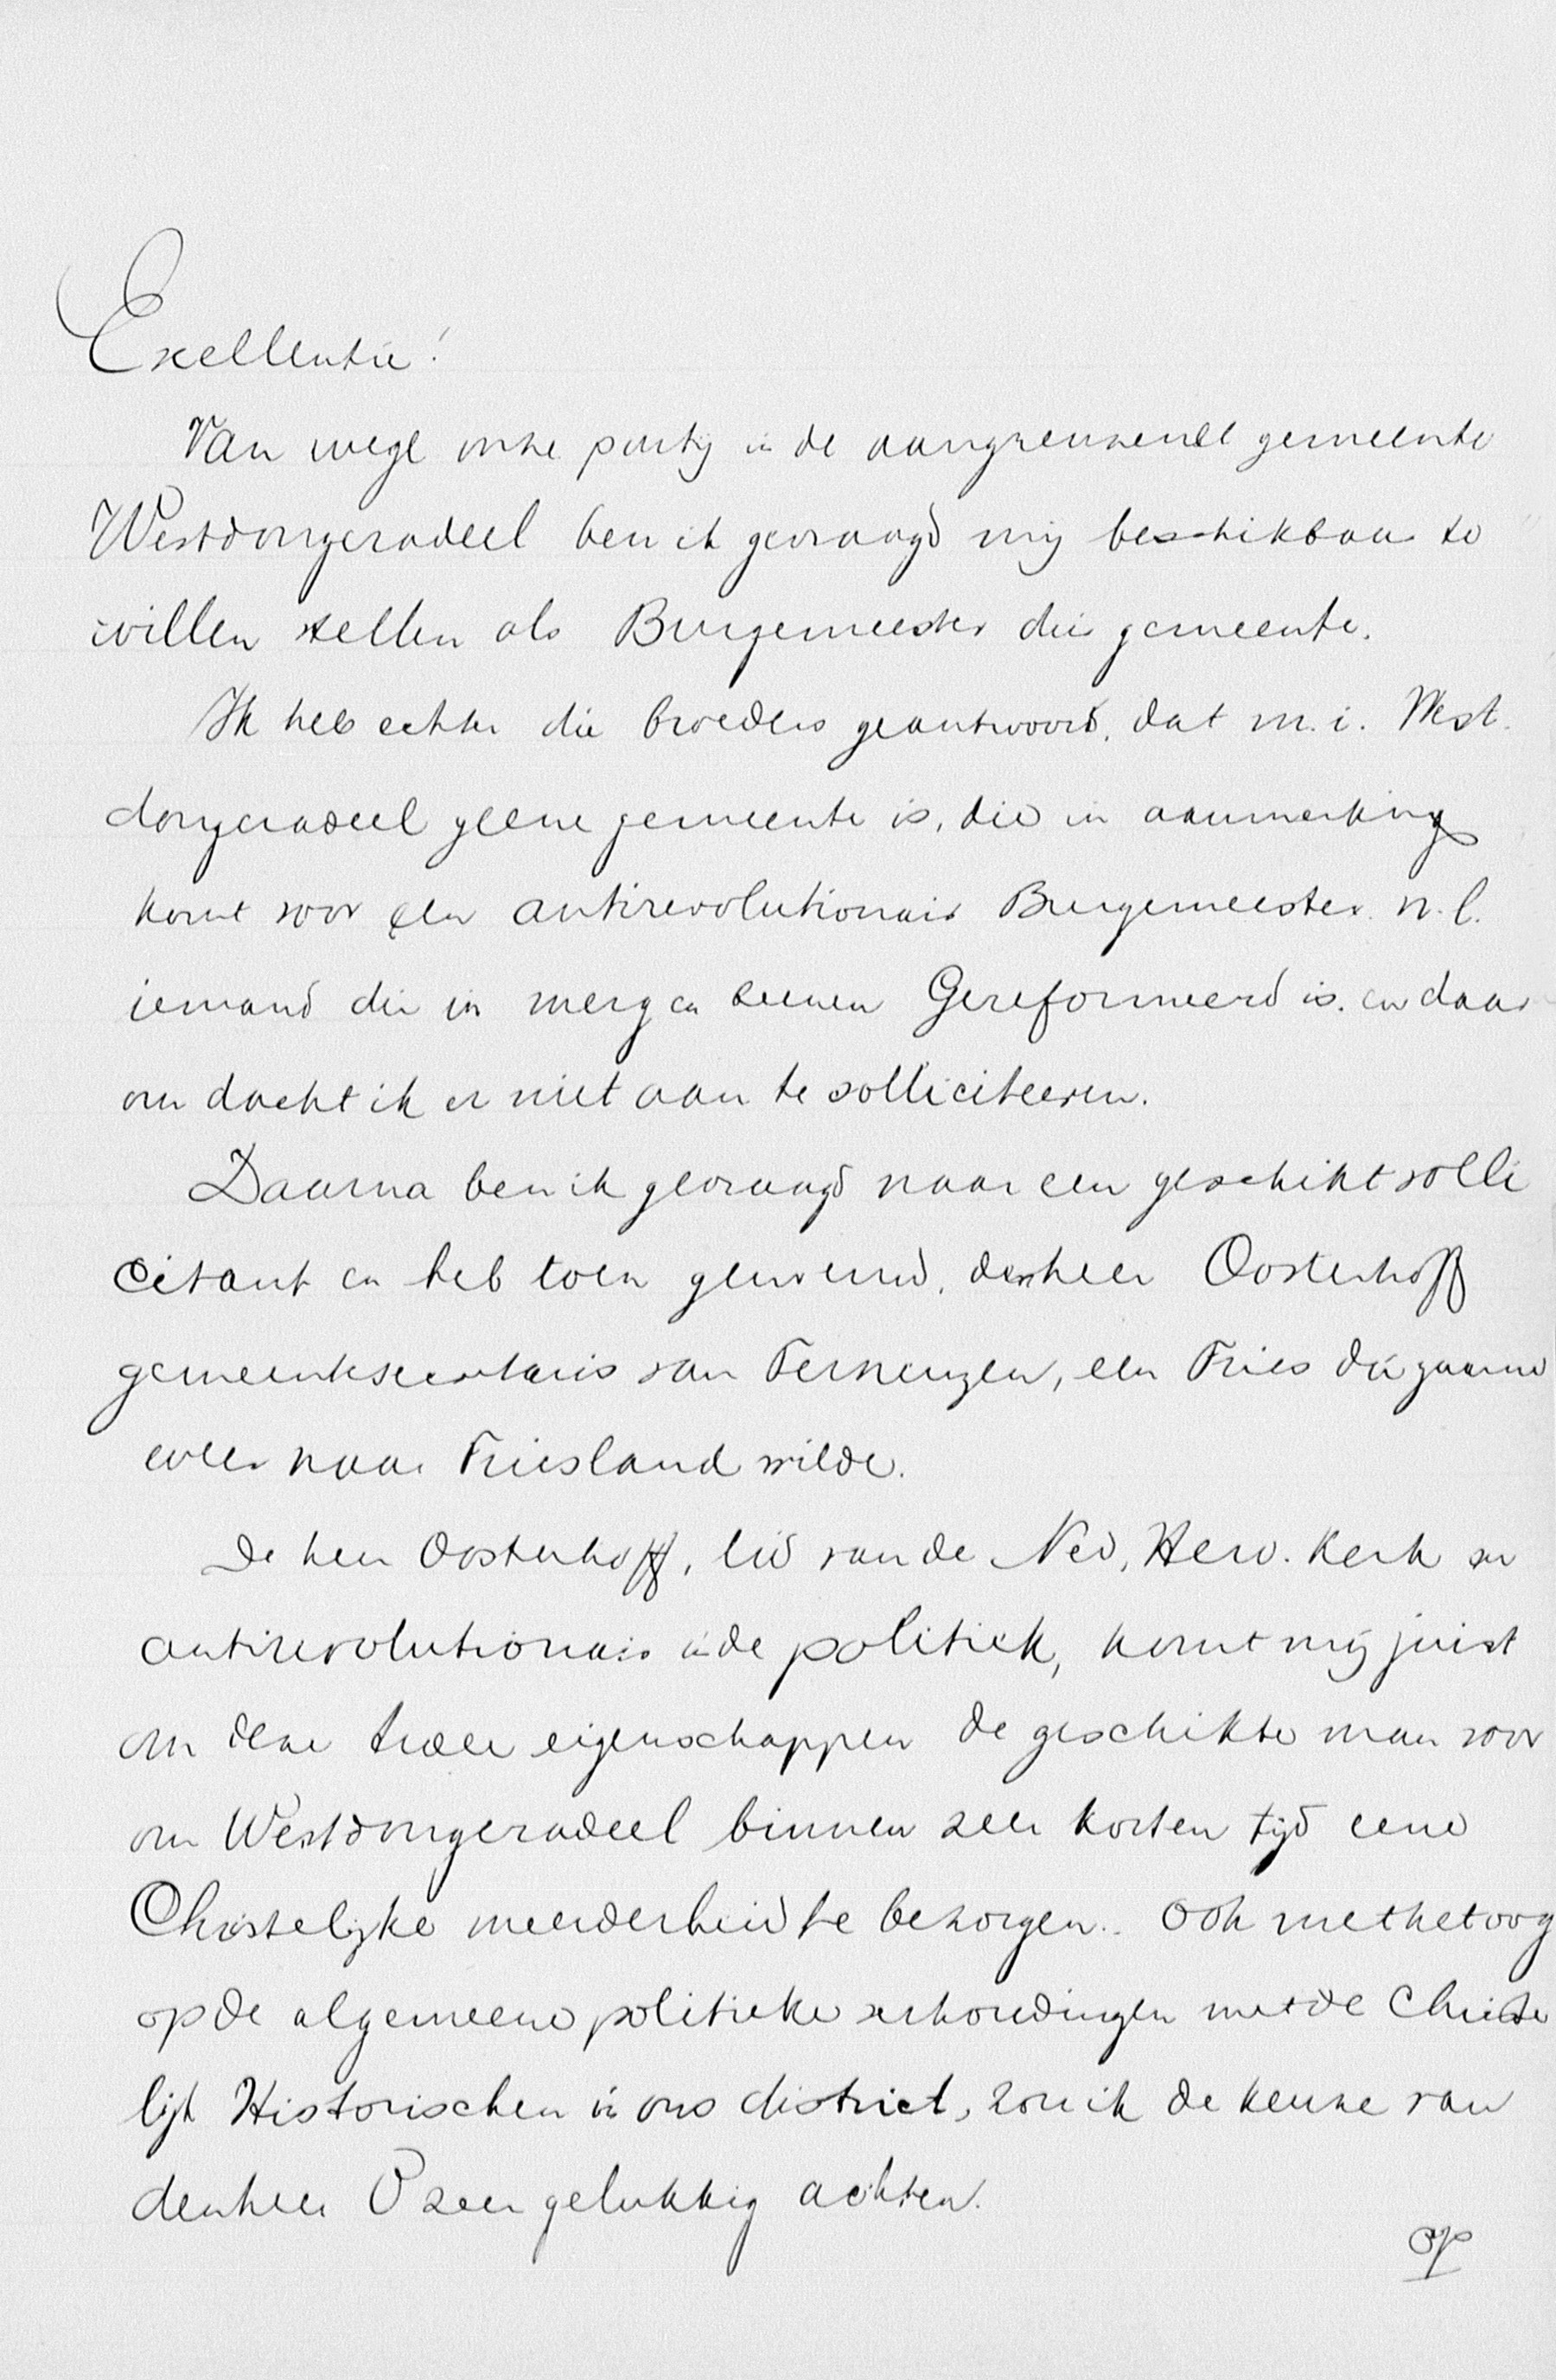 Excellentie!
Van wege onze partij in de aangrenzende gemeente
Westdongeradeel ben ik gevraagd mij beschikbaar te
willen stellen als Burgemeester dier gemeente.
Ik heb echter die broeders geantwoord, dat m.i. West.
dongeradeel geene gemeente is, die in aanmerking
komt voor een antirevolutionair Burgemeester n.l.
iemand die in merg en beenen Gereformeerd is. en daar
om dacht ik er niet aan te solliciteeren.
Daarna ben ik gevraagd naar een geschikt solli
citant en heb toen genoemd, den heer Oosterhoff
gemeentesecretaris van Terneuzen, een Fries die gaarne
weer naar Friesland wilde.
De heer Oosterhoff, lid van de Ned, Herv. Kerk en
antirevolutionair in de politiek, komt mij juist
om deze twee eigenschappen de geschikte man voor
om Westdongeradeel binnen zeer korten tijd eene
Christelijke meerderheid te bezorgen. Ook met het oog
op de algemeene politieke verhoudingen met de Christe
lijk Historischen in ons district, zou ik de keuze van
den heer O zeer gelukkig achten.
op